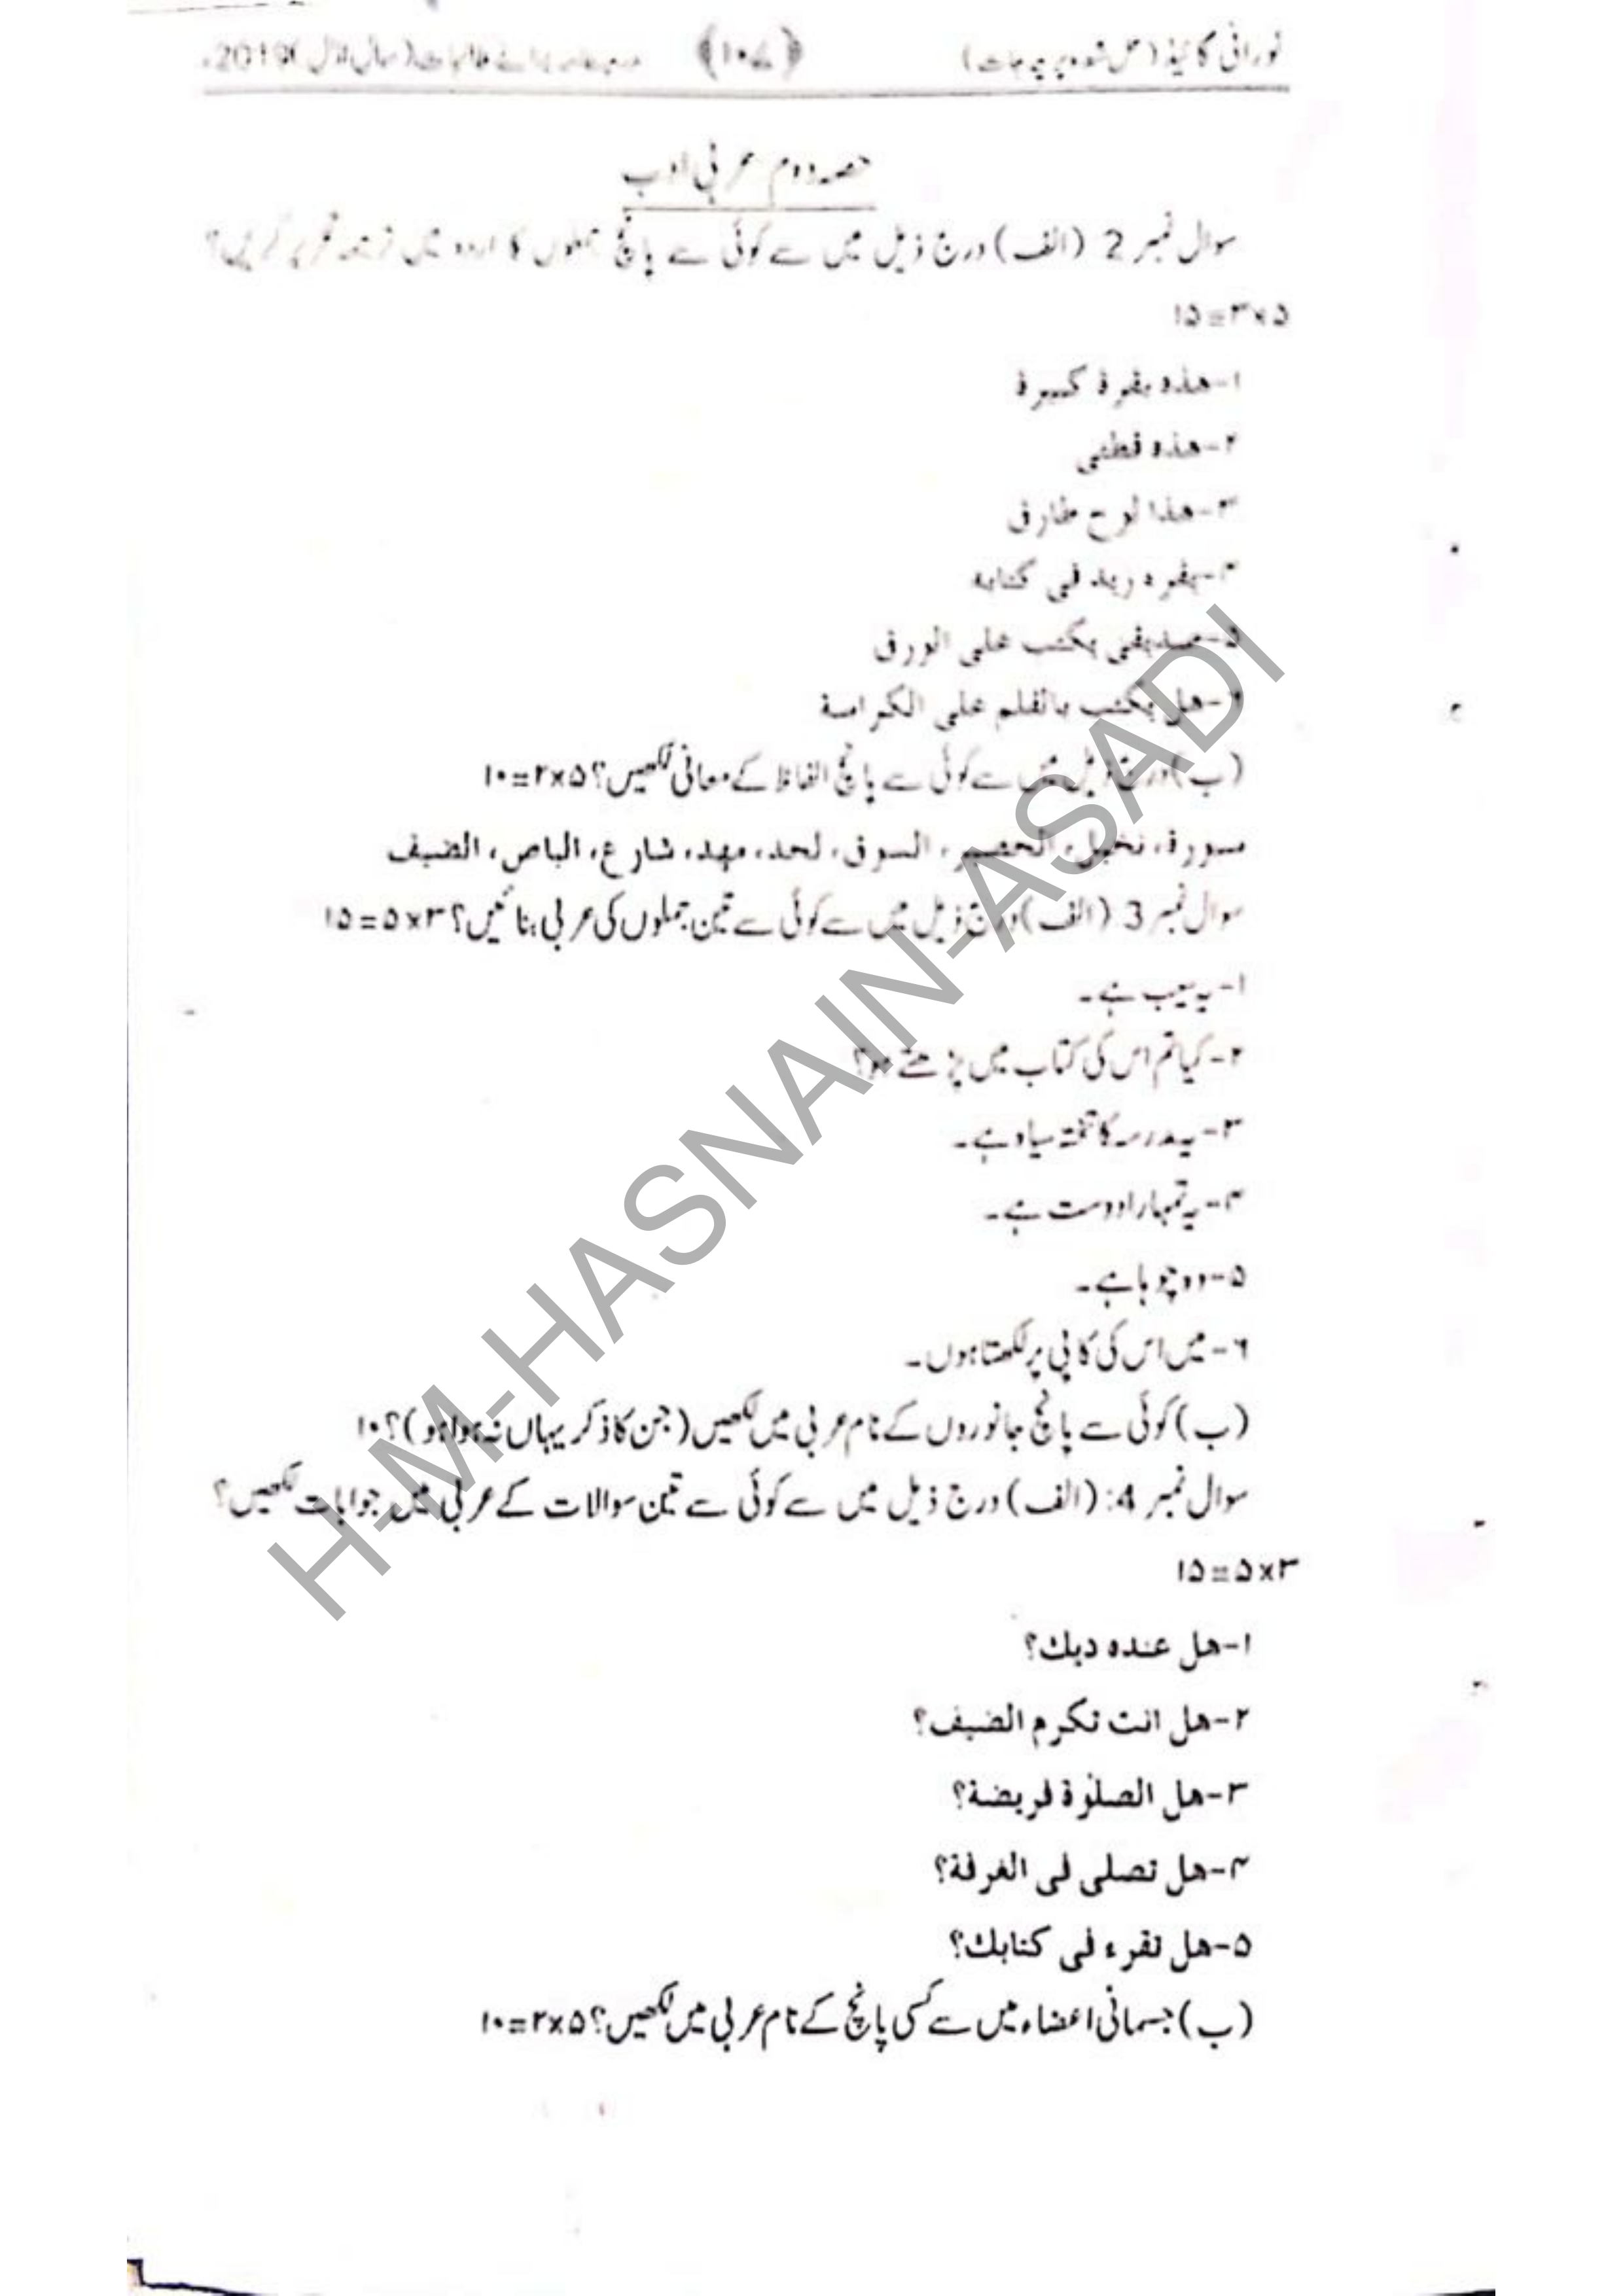 نورانی گائیڈ (حل شدہ پرچہ جات) ﴿۱۰۷﴾ طالبات (سال اول) 2019ء
حصہ دوم عربی ادب
سوال نمبر 2 (الف) درج ذیل میں سے کوئی سے پانچ جملوں کا اردو میں ترجمہ تحریر کریں؟
۵×۳=۱۵
۱-هذه بقرة كبيرة
۲-هذه قطتى
۳-هذا لوح طارق
۴-يقرء زيد فى كتابه
۵-صديقى يكتب على الورق
۶-هل يكتب بالقلم على الكراسة
(ب) درج ذیل میں سے کوئی سے پانچ الفاظ کے معانی لکھیں؟ ۵×۲=۱۰
سبورة، نخيل، الحصير، السوق، لحد، مهد، شارع، الباص، الضيف
سوال نمبر 3 (الف) درج ذیل میں سے کوئی سے تین جملوں کی عربی بنائیں؟ ۳×۵=۱۵
۱-یہ سیب ہے۔
۲-کیا تم اس کی کتاب میں پڑھتے ہو؟
۳-یہ مدرسہ کا تختہ سیاہ ہے۔
۴-یہ تمہارا دوست ہے۔
۵-وہ چوہا ہے۔
۶-میں اس کی کاپی پر لکھتا ہوں۔
(ب) کوئی سے پانچ جانوروں کے نام عربی میں لکھیں (جن کا ذکر یہاں نہ ہوا ہو)؟ ۱۰
سوال نمبر 4: (الف) درج ذیل میں سے کوئی سے تین سوالات کے عربی میں جوابات لکھیں؟
۳×۵=۱۵
۱-هل عنده ديك؟
۲-هل انت تكرم الضيف؟
۳-هل الصلوٰة فريضة؟
۴-هل تصلى فى الغرفة؟
۵-هل تقرء فى كتابك؟
(ب) جسمانی اعضاء میں سے کسی پانچ کے نام عربی میں لکھیں؟ ۵×۲=۱۰
H-M-HASNAIN-ASADI